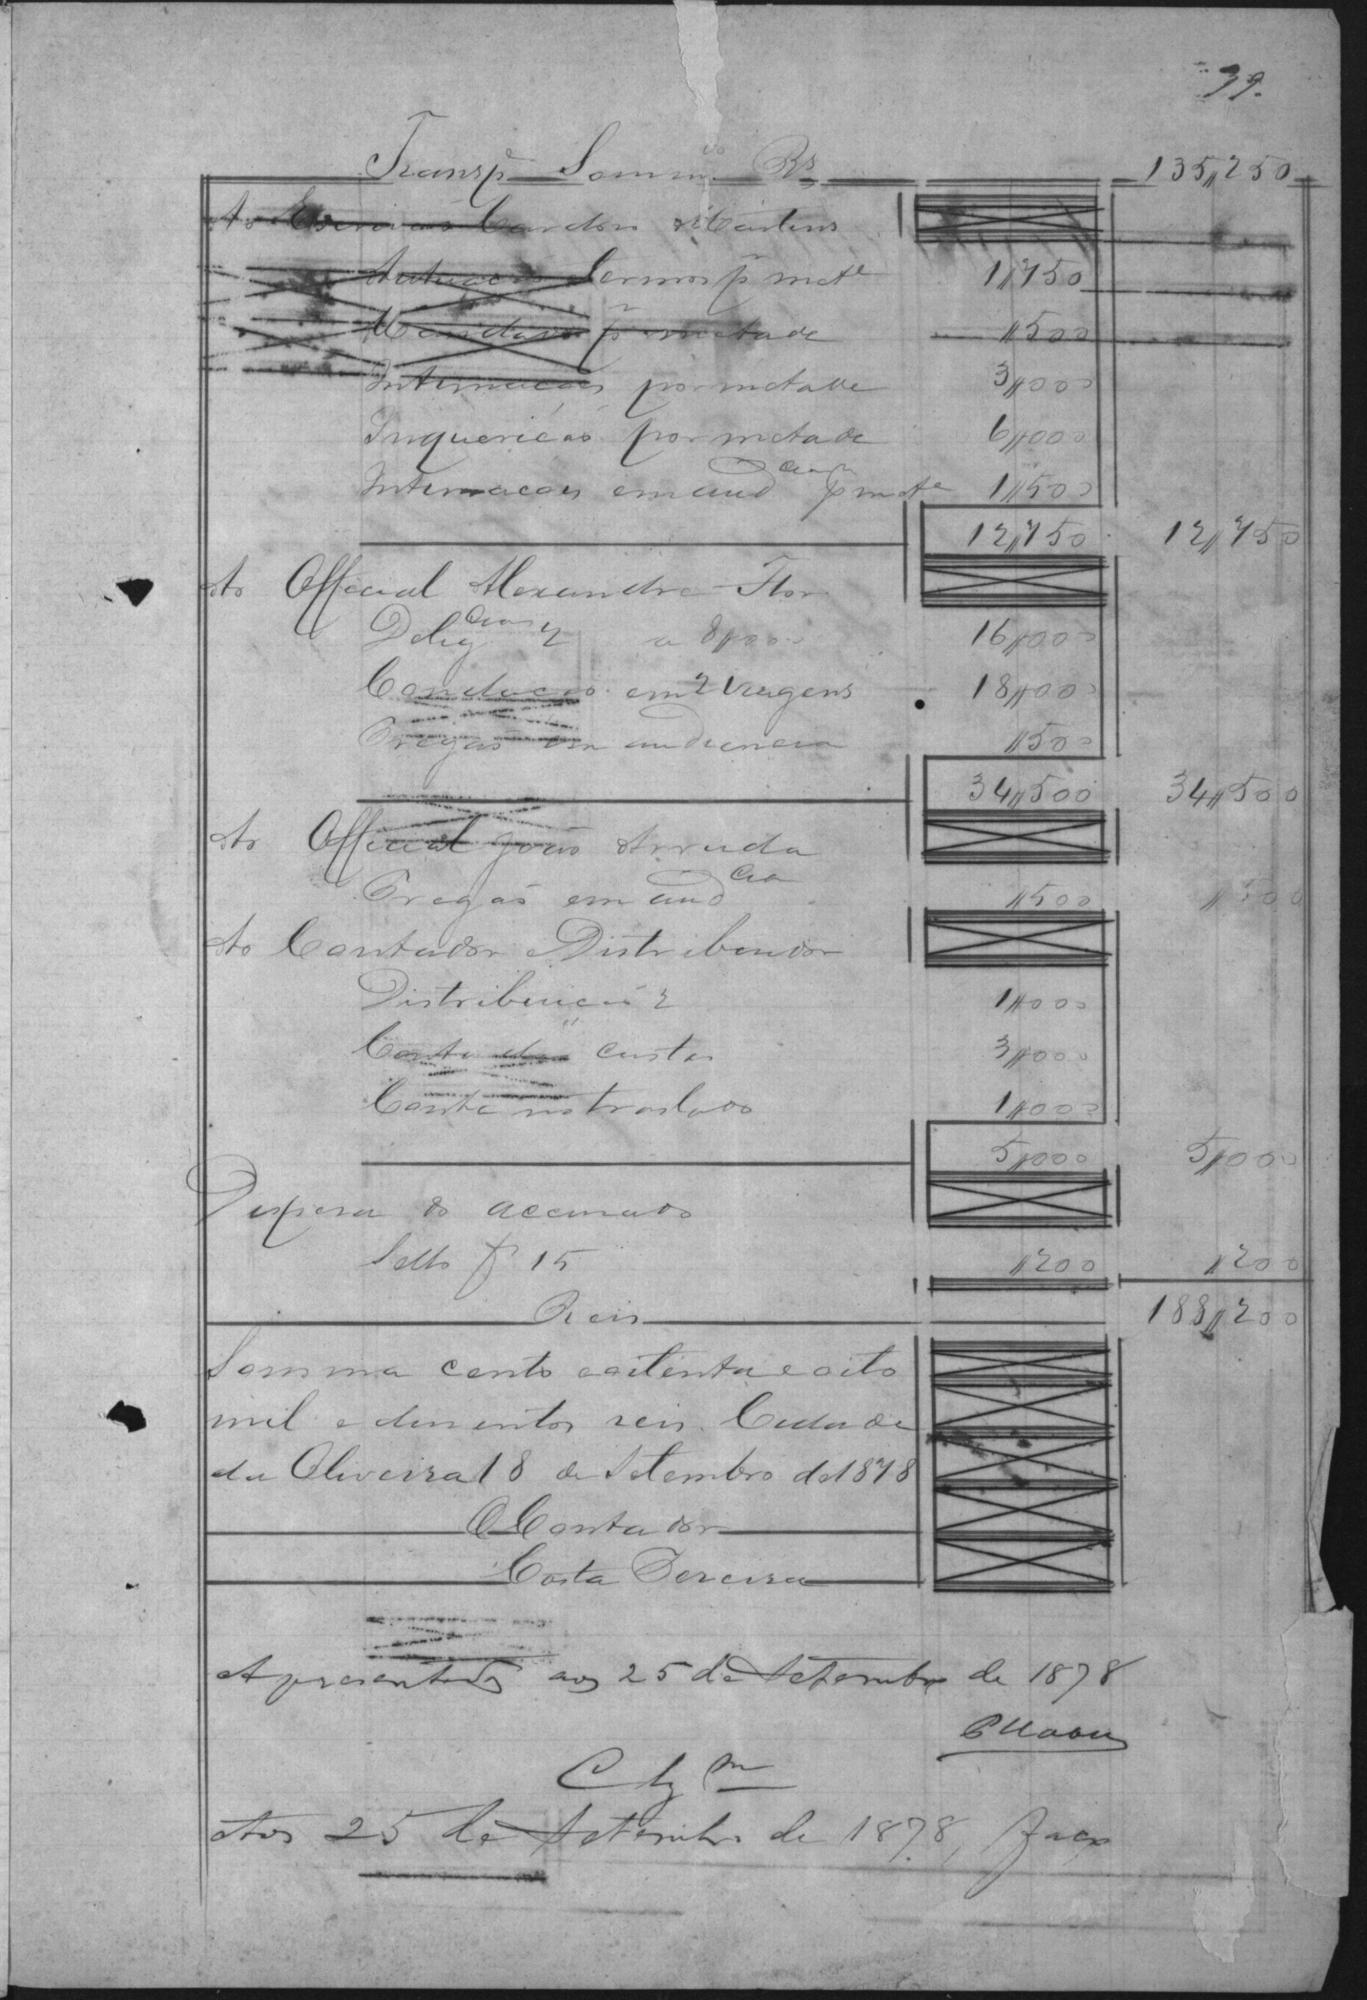 39.
Transpe Somma Rs 135,,250
Ao Escrivão Candoso Martins
Autuação Termos p mete 1,,750
Mandado p metade ,,500
Intimações por metade 3,,000
Inquerição por metade 6,,000
Intimações em audcia p mete 1,,500
12,,750 12,,750
Ao Official Alexandre Flor
Deligcias 2 a 8,,000 16,,000
Condução em 2 Viagens 18,,000
Pregão em audiencia ,,500
34,,500 34,,500
Ao Official João Arruda
Pregão em audcia ,,500 ,,500
Ao Contador e Distribuidor
Distribuição 2 1,,000
Conta de custas 3,,000
Conta no traslado 1,,000
5,,000 5,,000
Despesa do accusado
Sello f 15 ,,200 ,,200
Reis 188,,200
Somma cento e oitenta e oito
mil e duzentos reis. Cidade
da Oliveira 18 de Setembro de 1878
O Contador
Costa Pereira
Apresentados aos 25 de Setembro de 1878
Clzm
Aos 25 de Setembro de 1878, faço